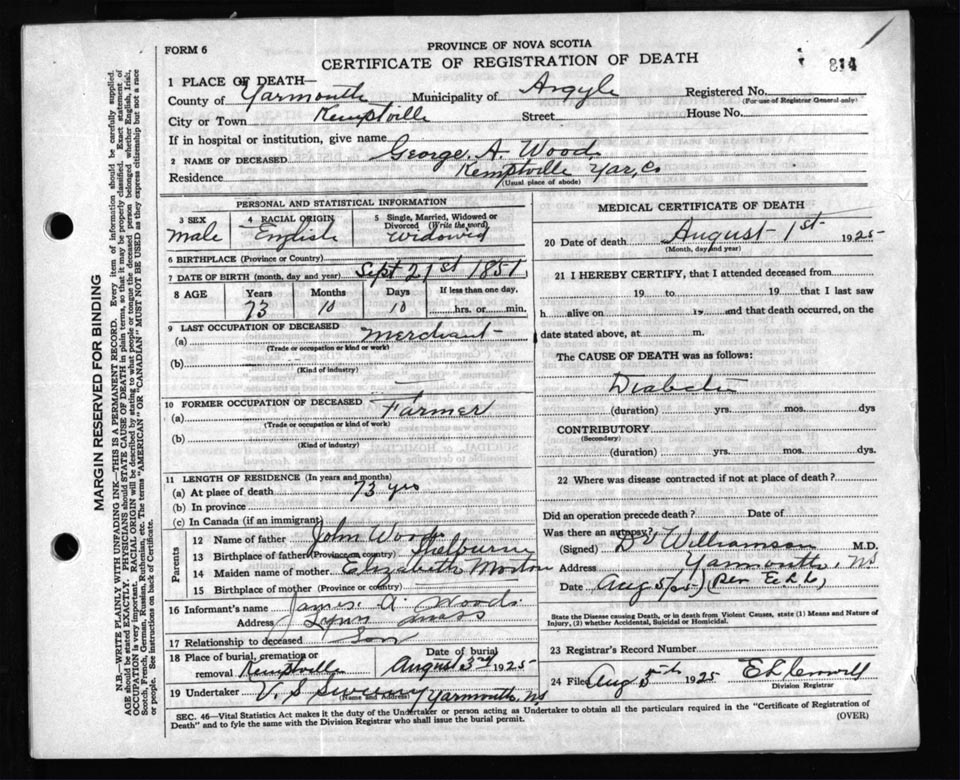 FORM 6
PROVINCE OF NOVA SCOTIA
CERTIFICATE OF REGISTRATION OF DEATH
814
1 PLACE OF DEATH—
County of Yarmouth Municipality of Argyle Registered No.
(For use of Registrar General only)
City or Town Kemptville Street House No.
If in hospital or institution, give name
2 NAME OF DECEASED George. A. Wood.
Residence Kemptville Yar, Co
(Usual place of abode)
PERSONAL AND STATISTICAL INFORMATION
3 SEX 4 RACIAL ORIGIN 5 Single, Married, Widowed or
Divorced (Write the word)
Male English Widowed
6 BIRTHPLACE (Province or Country)
7 DATE OF BIRTH (month, day and year) Sept 21st 1851
8 AGE Years Months Days If less than one day,
73 10 10 hrs. or min.
9 LAST OCCUPATION OF DECEASED
(a) Merchant
(Trade or occupation or kind of work)
(b)
(Kind of industry)
10 FORMER OCCUPATION OF DECEASED
(a) Farmer
(Trade or occupation or kind of work)
(b)
(Kind of industry)
11 LENGTH OF RESIDENCE (In years and months)
(a) At place of death 73 yrs
(b) In province
(c) In Canada (if an immigrant)
Parents
12 Name of father John Wood
13 Birthplace of father (Province or country) Shelburne
14 Maiden name of mother Elizabeth Morton
15 Birthplace of mother (Province or country)
16 Informant's name James A Woods
Address Lynn Mass
17 Relationship to deceased Son
18 Place of burial, cremation or Date of burial
removal Kemptville August 3rd 1925
19 Undertaker V. S Sweeny Yarmouth, NS
(Name and Address)
MEDICAL CERTIFICATE OF DEATH
20 Date of death August 1st 1925
(Month, day and year)
21 I HEREBY CERTIFY, that I attended deceased from
19 to 19 that I last saw
h alive on 19 and that death occurred, on the
date stated above, at m.
The CAUSE OF DEATH was as follows:
Diabetes
(duration) yrs. mos. dys
CONTRIBUTORY
(Secondary)
(duration) yrs. mos. dys.
22 Where was disease contracted if not at place of death?
Did an operation precede death? Date of
Was there an autopsy?
(Signed) Williamson M.D.
Address Yarmouth, NS
Date Aug 5/25 (Per
State the Disease causing Death, or in death from Violent Causes, state (1) Means and Nature of
Injury, (2) whether Accidental, Suicidal or Homicidal.
23 Registrar's Record Number
24 Filed Aug 5th 1925
Division Registrar
SEC. 46—Vital Statistics Act makes it the duty of the Undertaker or person acting as Undertaker to obtain all the particulars required in the "Certificate of Registration of
Death" and to fyle the same with the Division Registrar who shall issue the burial permit. (OVER)
MARGIN RESERVED FOR BINDING
N.B.—WRITE PLAINLY WITH UNFADING INK—THIS IS A PERMANENT RECORD. Every item of information should be carefully supplied.
AGE should be stated EXACTLY. PHYSICIANS should STATE CAUSE OF DEATH in plain terms, so that it may be properly classified. Exact statement of
OCCUPATION is very important. RACIAL ORIGIN will be described by stating to what people or tongue the deceased person belonged whether English, Irish,
Scotch, French, German, Russian, Ruthenian, etc. The terms "AMERICAN" OR "CANADIAN" MUST NOT BE USED as they express citizenship but not a race
or people. See instructions on back of Certificate.